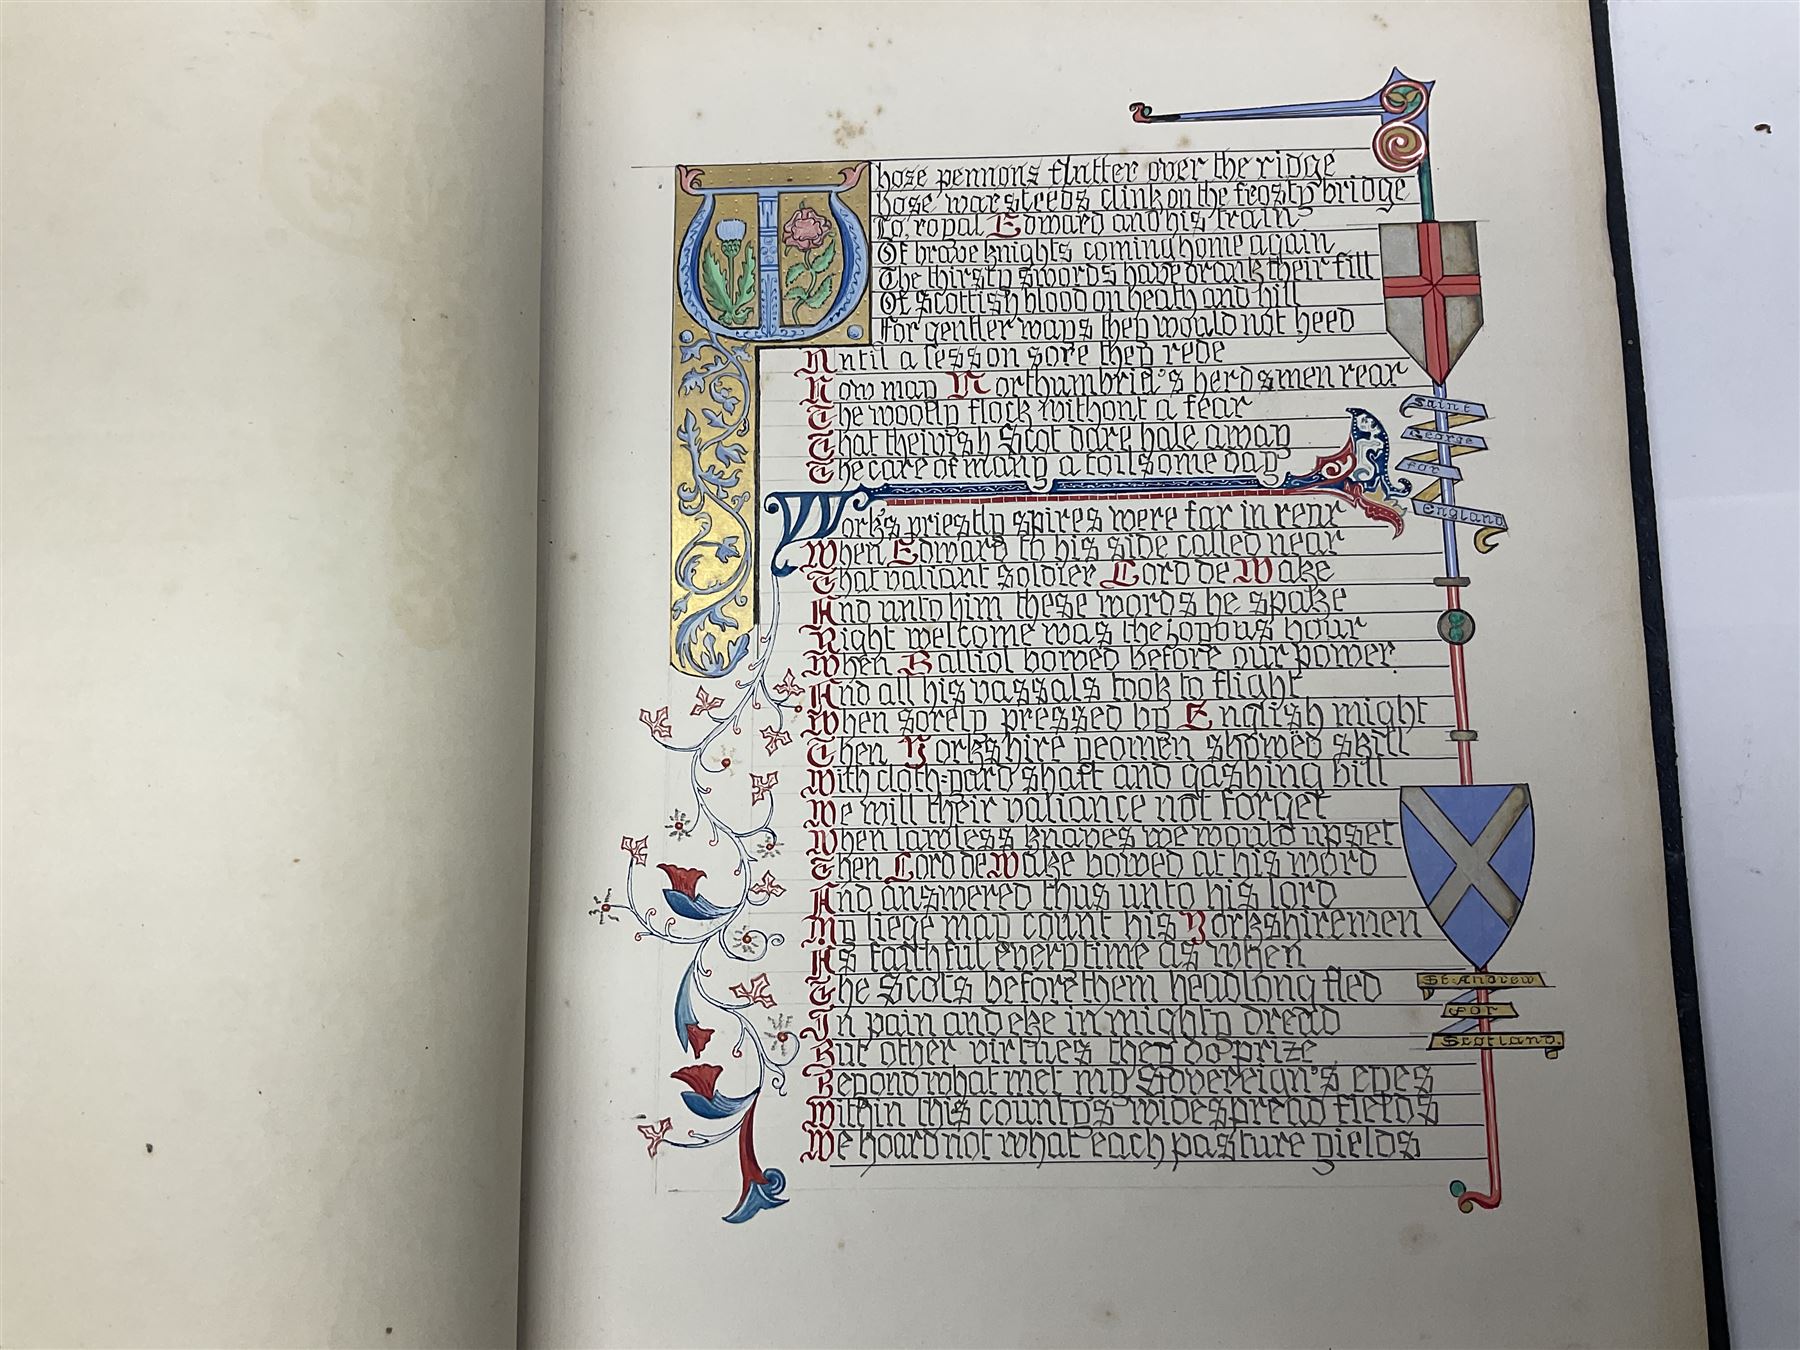 Those pennons flutter over the ridge
hose war steeds clink on the frosty bridge
Lo, royal Edward and his train
Of brave knights coming home again
The thirsty swords have drank their fill
Of Scottish blood on heath and hill
For gentler ways they would not heed
Until a lesson sore they rede
Now may Northumbria's herdsmen rear
The woolly flock without a fear
That theivish Scot dare hale away
The care of many a toilsome day
York's priestly spires were far in rear
When Edward to his side called near
That valiant soldier Lord de Wake
And unto him these words he spake
Right welcome was the joyous hour
When Balliol bowed before our power
And all his vassals took to flight
When sorely pressed by English might
Then Yorkshire yeomen showed skill
With cloth-yard shaft and gashing bill
We will their valiance not forget
When lawless knaves we would upset
Then Lord de Wake bowed at his word
And answered thus unto his lord
My liege may count his Yorkshiremen
As faithful everytime as when
The Scots before them headlong fled
In pain and eke in mighty dread
But other virtues they do prize
Beyond what met my Sovereign's eyes
Within this county's widespread fields
We hoard not what each pasture yields
Saint
George
for
England
St. Andrew
for
Scotland.